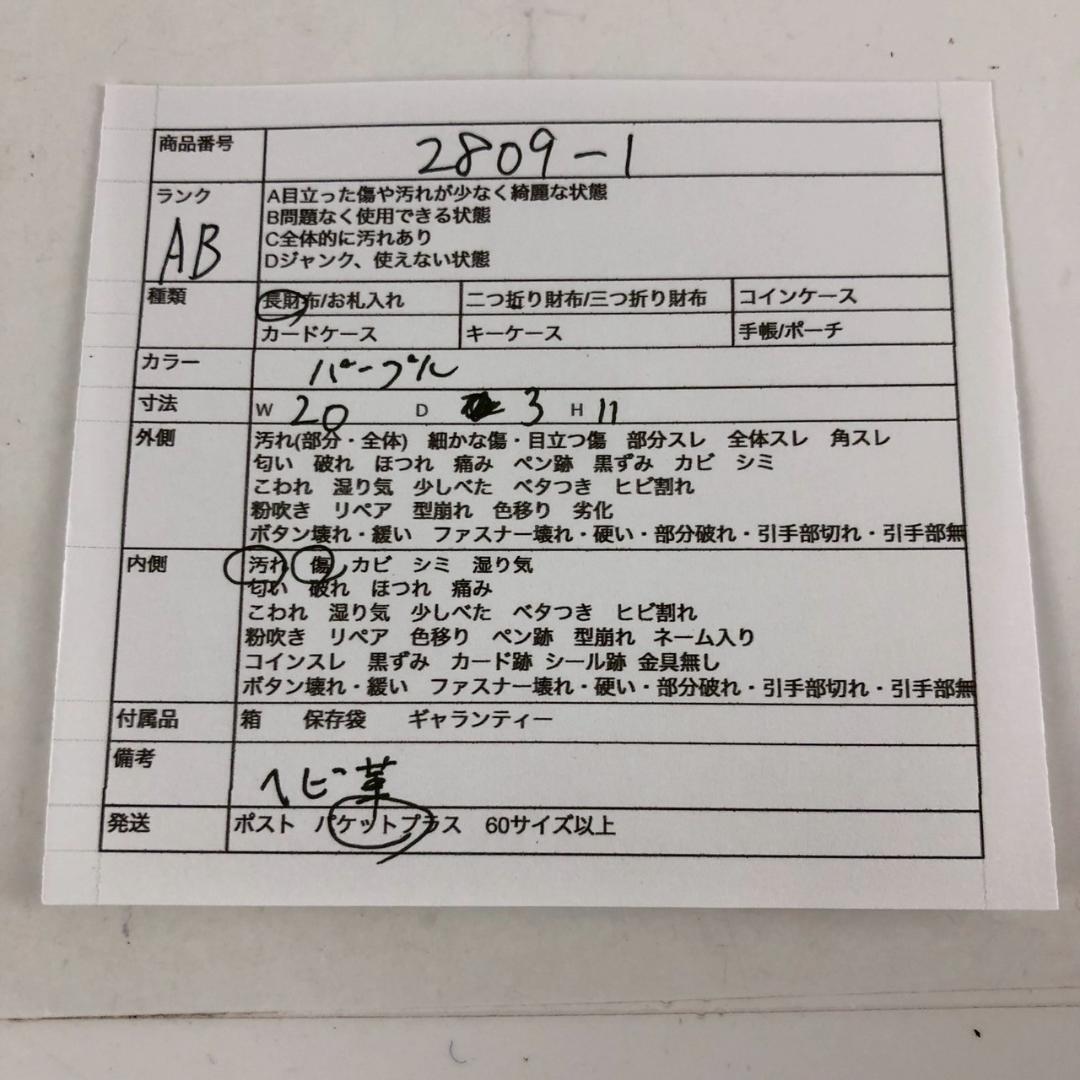 商品番号 2809-1
ランク A目立った傷や汚れが少なく綺麗な状態
B問題なく使用できる状態
AB C全体的に汚れあり
Dジャンク、使えない状態
種類 長財布/お札入れ 二つ折り財布/三つ折り財布 コインケース
カードケース キーケース 手帳/ポーチ
カラー パープル
寸法 W 20 D 3 H 11
外側 汚れ(部分・全体) 細かな傷・目立つ傷 部分スレ 全体スレ 角スレ
匂い 破れ ほつれ 痛み ペン跡 黒ずみ カビ シミ
こわれ 湿り気 少しべた ベタつき ヒビ割れ
粉吹き リペア 型崩れ 色移り 劣化
ボタン壊れ・緩い ファスナー壊れ・硬い・部分破れ・引手部切れ・引手部無
内側 汚れ 傷 カビ シミ 湿り気
匂い 破れ ほつれ 痛み
こわれ 湿り気 少しべた ベタつき ヒビ割れ
粉吹き リペア 色移り ペン跡 型崩れ ネーム入り
コインスレ 黒ずみ カード跡 シール跡 金具無し
ボタン壊れ・緩い ファスナー壊れ・硬い・部分破れ・引手部切れ・引手部無
付属品 箱 保存袋 ギャランティー
備考 ヘビ革
発送 ポスト パケットプラス 60サイズ以上